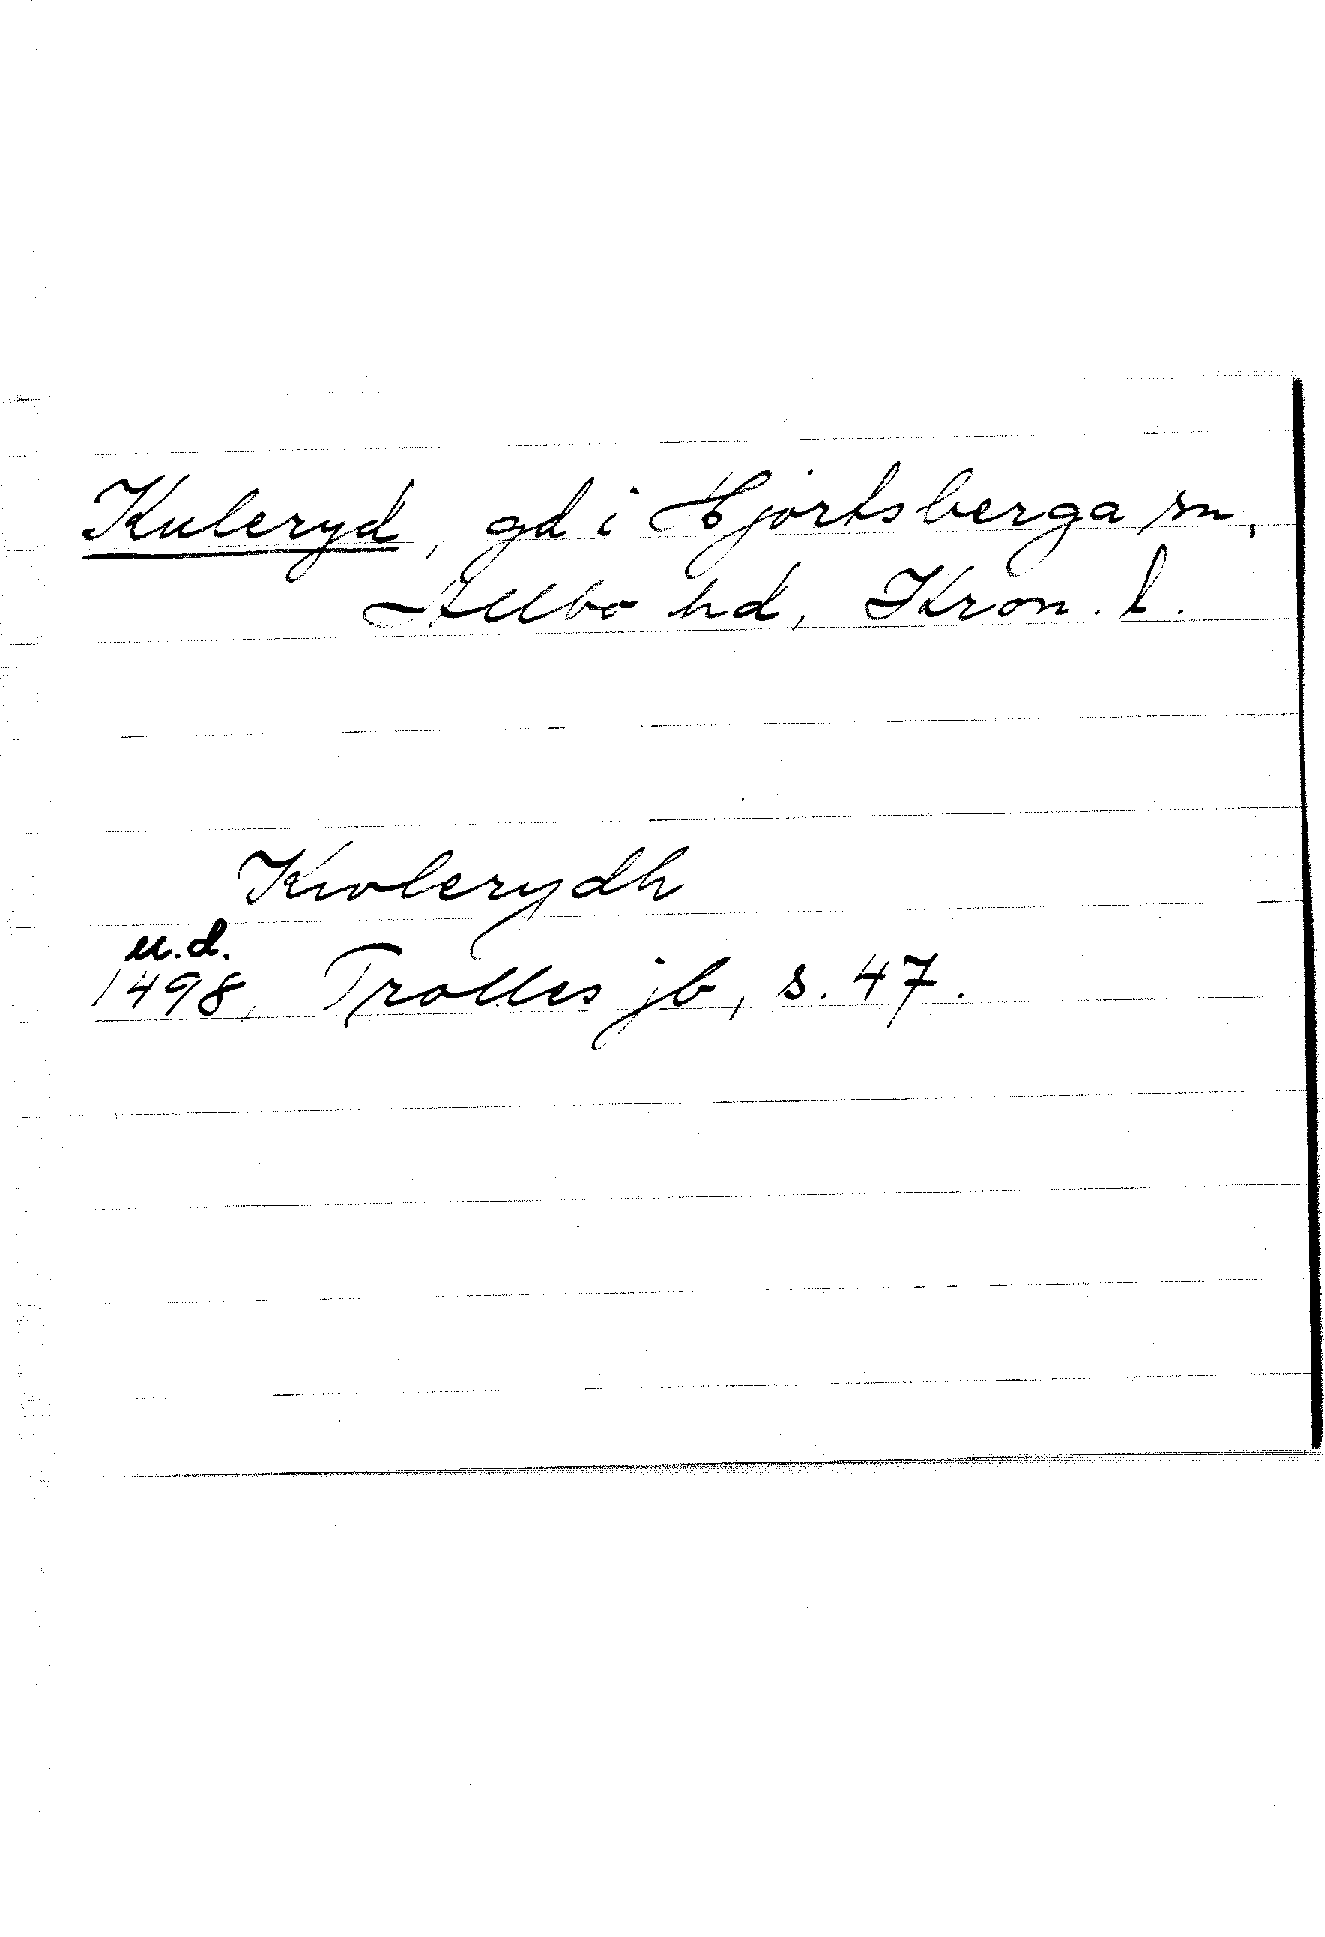 Kuleryd, gd i Hjortsberga sn,
Allbo hd, Kron. l.
Kwlerydh
u.d.
1498, Trolles jb, s. 47.